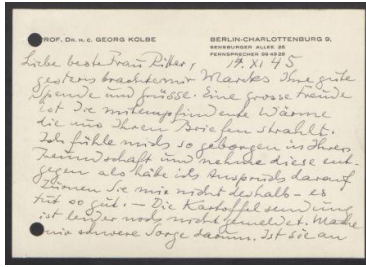 PROF. DR. H. C. GEORG KOLBE
BERLIN-CHARLOTTENBURG 9,
SENSBURGER ALLEE 25
FERNSPRECHER 99 49 25
19. XI 45
Liebe beste Frau Ritter,
gestern brachte mir Marcks Ihre gute
Spende und Grüsse. Eine grosse Freude
ist die mitempfindende Wärme
die aus Ihren Briefen strahlt.
Ich fühle mich so geborgen in Ihrer
Freundschaft und nehme diese ent-
gegen als hätte ich Anspruch darauf
Zürnen Sie mir nicht deshalb – es
tut so gut. – Die Kartoffelsendung
ist leider noch nicht gemeldet. Mache
mir schwere Sorge darum. Ist sie an